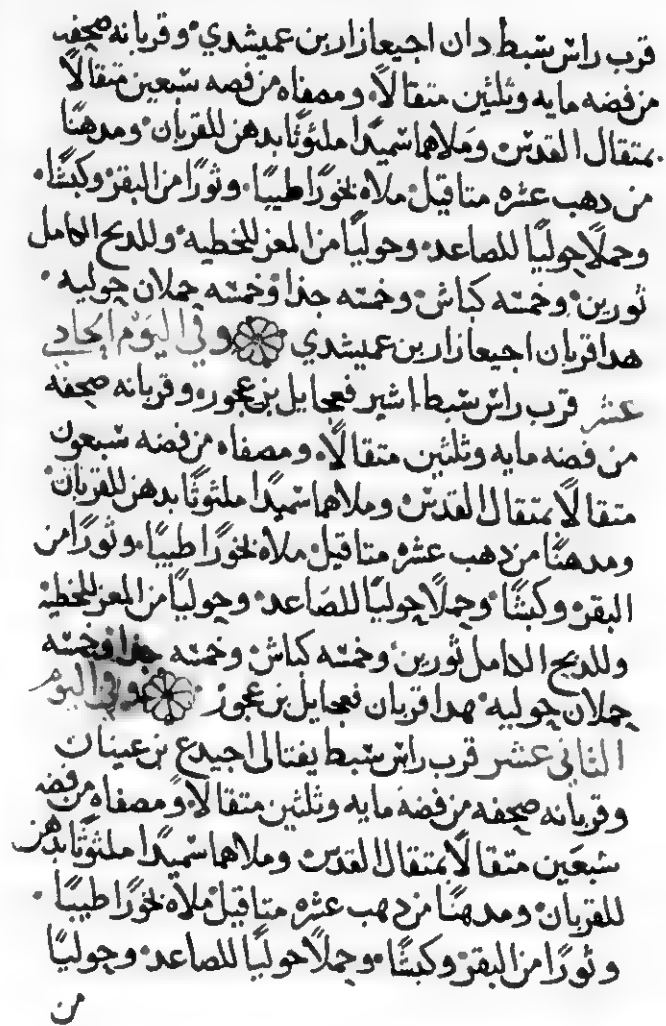 قرب راس سبط دان اجيعازار بن عميشدي وقربانه صحفه
من فضه مايه وثلثين متقالاً ومصفاه من فضه سبعين متقالاً
بمتقال القدس وملاهما سميداً ملثوثاً بدهن للقربان ومدهناً
من دهب عشره متاقيل ملاه بخوراً طيباً وثوراً من البقر وكبشاً
وحملاً حولياً للصاعد وحولياً من المعز للخطيه وللدبح الكامل
ثورين وخمسه كباش وخمسه جدا وخمسه حملان حوليه
هدا قربان اجيعازار بن عميشدي وفي اليوم الحادي
عشر قرب راس سبط اشير فعجايل بن عجور وقربانه صحفه
من فضه مايه وثلثين متقالاً ومصفاه من فضه سبعون
متقالاً بمتقال القدس وملاهما سميداً ملثوثاً بدهن للقربان
ومدهناً من دهب عشره متاقيل ملاه بخوراً طيباً وثوراً من
البقر وكبشاً وحملاً حولياً للصاعد وحولياً من المعز للخطيه
وللدبح الكامل ثورين وخمسه كباش وخمسه جدا وخمسه
حملان حوليه هدا قربان فعجايل بن عجور وفي اليوم
التاني عشر قرب راس سبط يفتالى اجيدع بن عينان
وقربانه صحفه من فضه مايه وثلثين متقالاً ومصفاه من فضه
سبعين متقالاً بمتقال القدس وملاهما سميداً ملثوثاً بدهن
للقربان ومدهناً من دهب عشره متاقيل ملاه بخوراً طيباً
وثوراً من البقر وكبشاً وحملاً حولياً للصاعد وحولياً
من